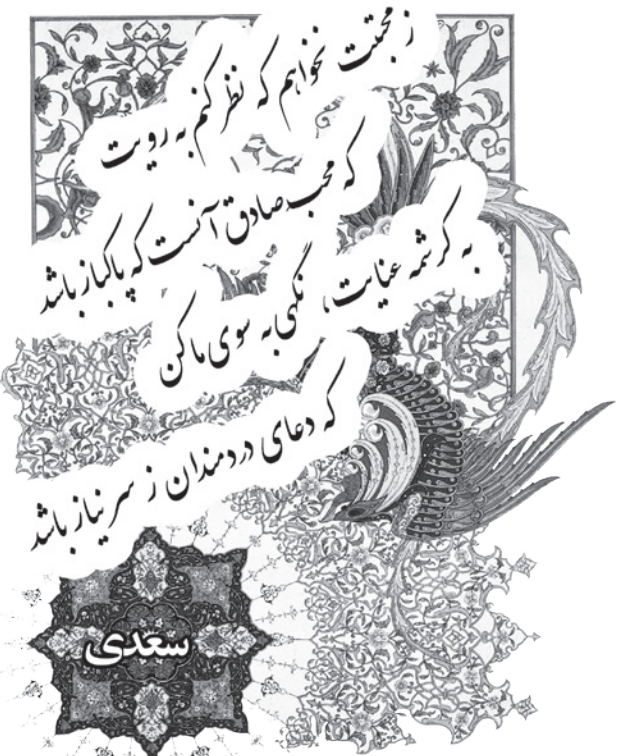 ز محبتت نخواهم که نظر کنم به رویت
که محب صادق آنست که پاکباز باشد
به کرشمه عنایت، نگهی به سوی ما کن
که دعای دردمندان ز سر نیاز باشد
سعدی